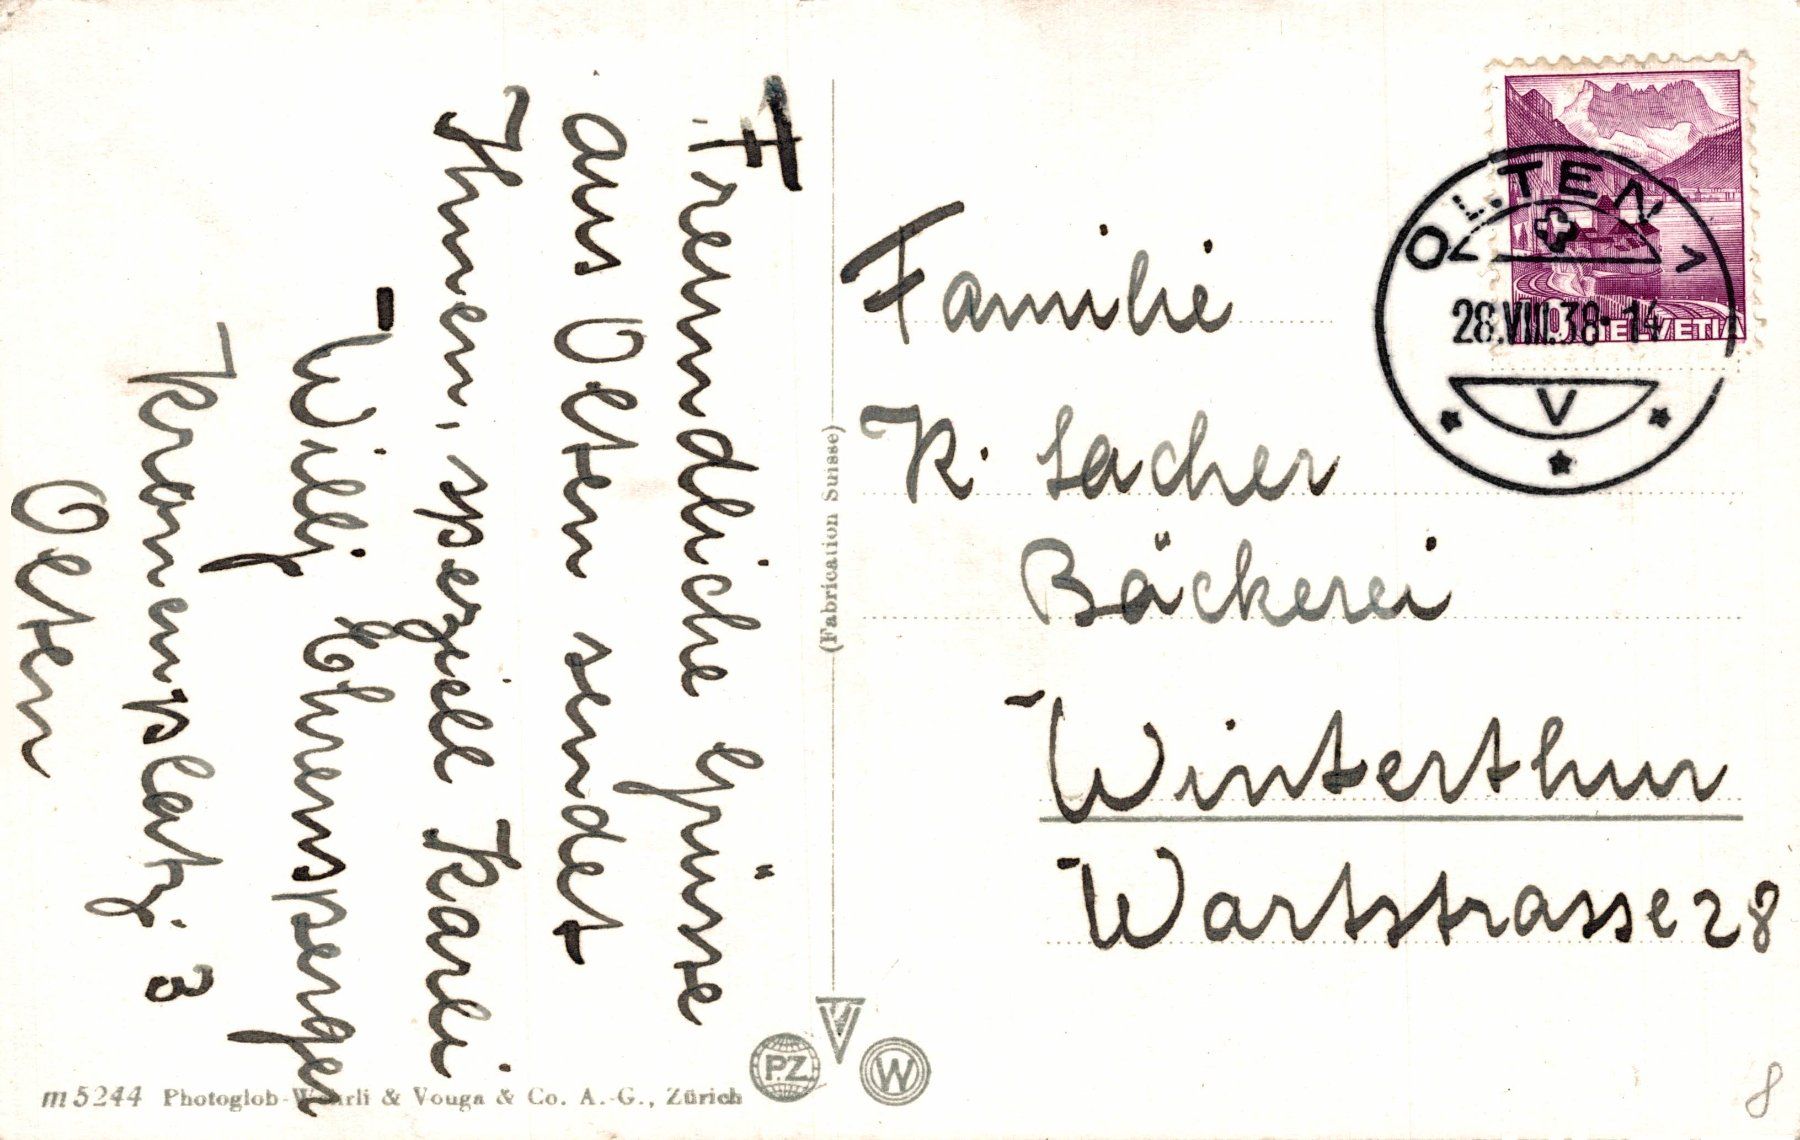 Freundliche Grüsse
aus Olten sendet
Ihnen, speziell Karli
Willy Ehrensperger
Kronenplatz 3
Olten
Familie
K. Sacher
Bäckerei
Winterthur
Wartstrasse 28
OLTEN
28.VIII.38-14
V
HELVETIA
(Fabrication Suisse)
m 5244 Photoglob-Wehrli & Vouga & Co. A.-G., Zürich
P.Z.
V
W
8